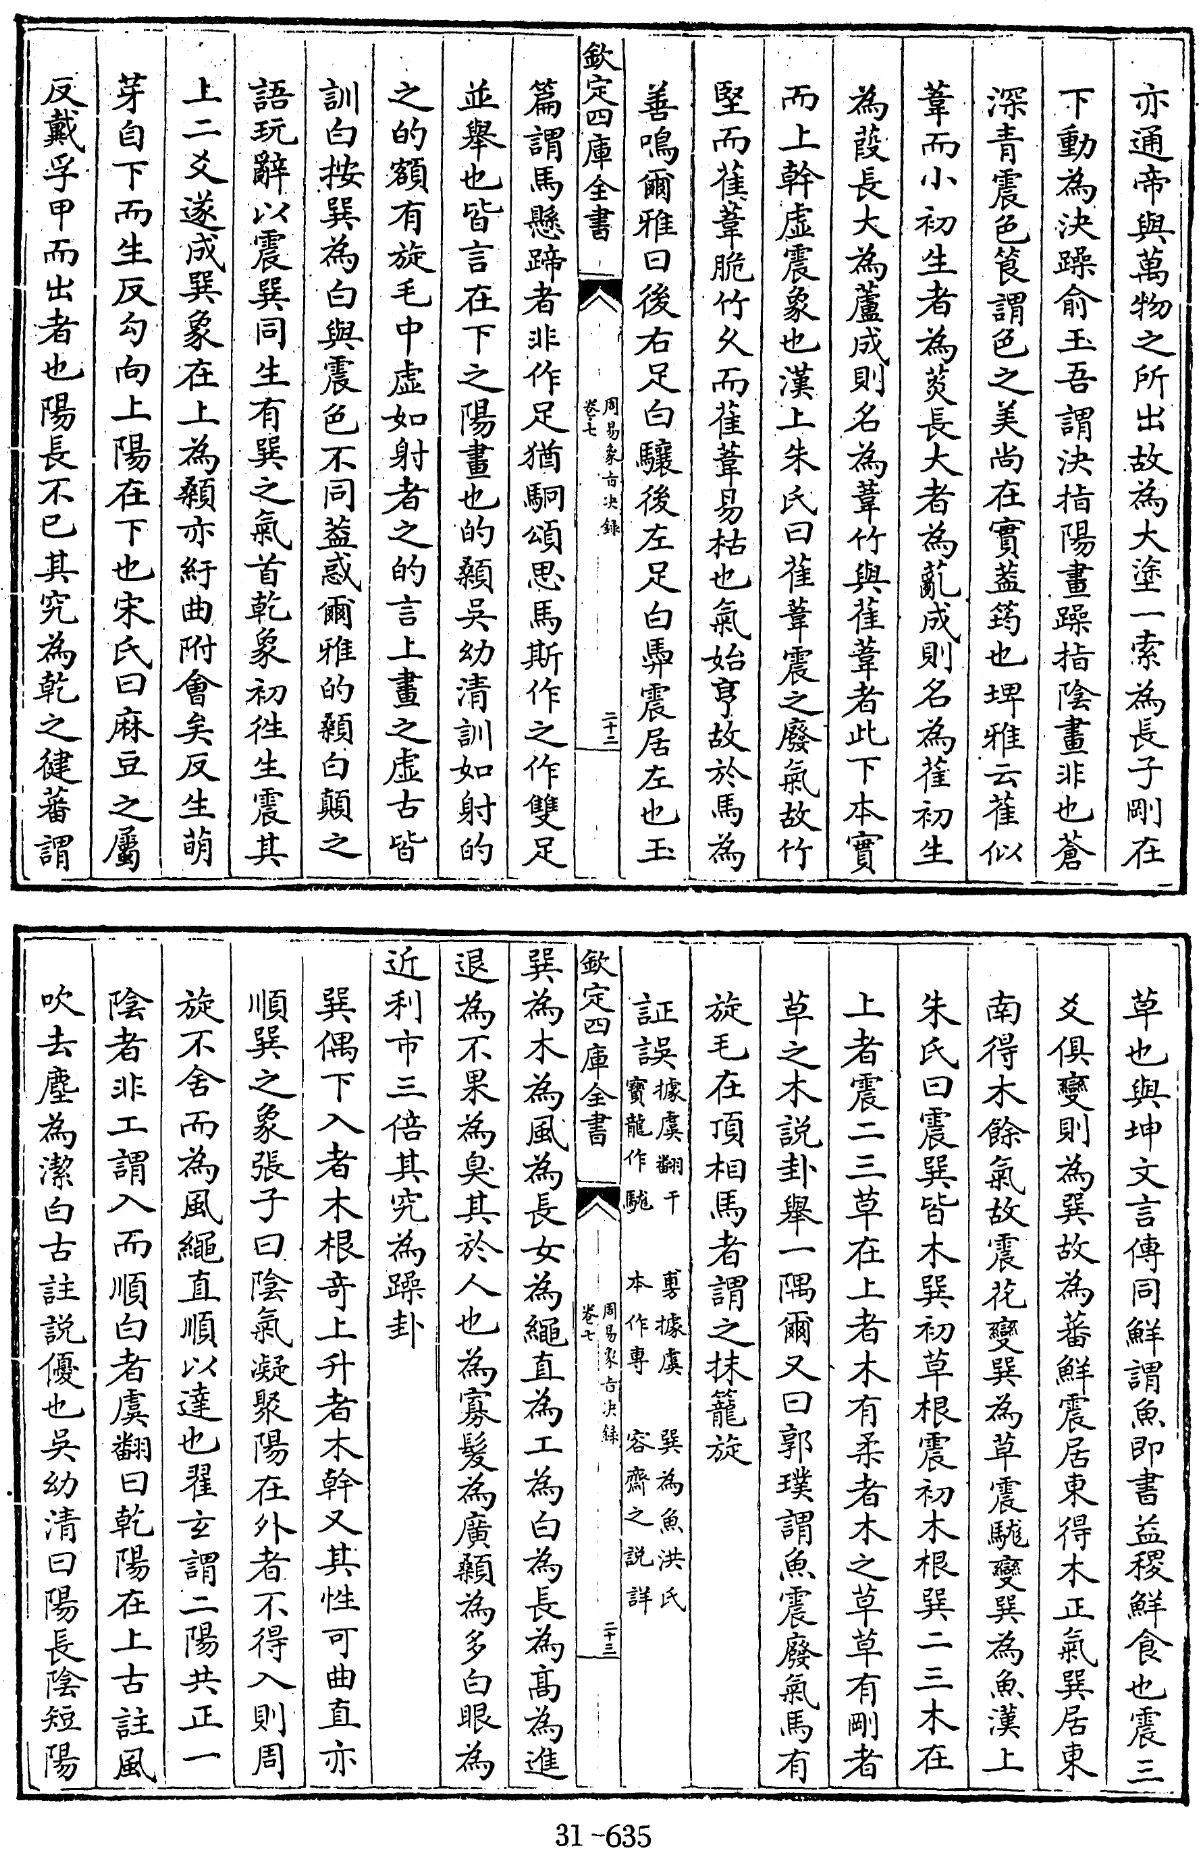 亦通帝與萬物之所出故為大塗一索為長子剛在
下動為決躁俞玉吾謂決指陽畫躁指陰畫非也蒼
深青震色筤謂色之美尚在實葢筠也埤雅云萑似
葦而小初生者為菼長大者為薍成則名為萑初生
為葭長大為蘆成則名為葦竹與萑葦者此下本實
而上幹虚震象也漢上朱氏曰萑葦震之廢氣故竹
堅而萑葦脆竹久而萑葦易枯也氣始亨故於馬為
善鳴爾雅曰後右足白驤後左足白馵震居左也玉
欽定四庫全書
周易象旨决録
卷七
二十二
篇謂馬懸蹄者非作足猶駉頌思馬斯作之作雙足
並舉也皆言在下之陽畫也的顙吳幼清訓如射的
之的額有旋毛中虚如射者之的言上畫之虚古皆
訓白按巽為白與震色不同葢惑爾雅的顙白顛之
語玩辭以震巽同生有巽之氣首乾象初徃生震其
上二爻遂成巽象在上為顙亦紆曲附會矣反生萌
芽自下而生反勾向上陽在下也宋氏曰麻豆之屬
反戴孚甲而出者也陽長不已其究為乾之健蕃謂
草也與坤文言傳同鮮謂魚即書益稷鮮食也震三
爻俱變則為巽故為蕃鮮震居東得木正氣巽居東
南得木餘氣故震花變巽為草震駹變巽為魚漢上
朱氏曰震巽皆木巽初草根震初木根巽二三木在
上者震二三草在上者木有柔者木之草草有剛者
草之木説卦舉一隅爾又曰郭璞謂魚震廢氣馬有
旋毛在頂相馬者謂之抹籠旋
証誤據虞翻干寶龍作駹 旉據虞本作專 巽為魚洪氏容齋之説詳
欽定四庫全書
周易象旨决録
卷七
二十三
巽為木為風為長女為繩直為工為白為長為高為進
退為不果為臭其於人也為寡髮為廣顙為多白眼為
近利市三倍其究為躁卦
巽偶下入者木根奇上升者木幹又其性可曲直亦
順巽之象張子曰陰氣凝聚陽在外者不得入則周
旋不舍而為風繩直順以達也翟玄謂二陽共正一
陰者非工謂入而順白者虞翻曰乾陽在上古註風
吹去塵為潔白古註説優也吳幼清曰陽長陰短陽
31-635